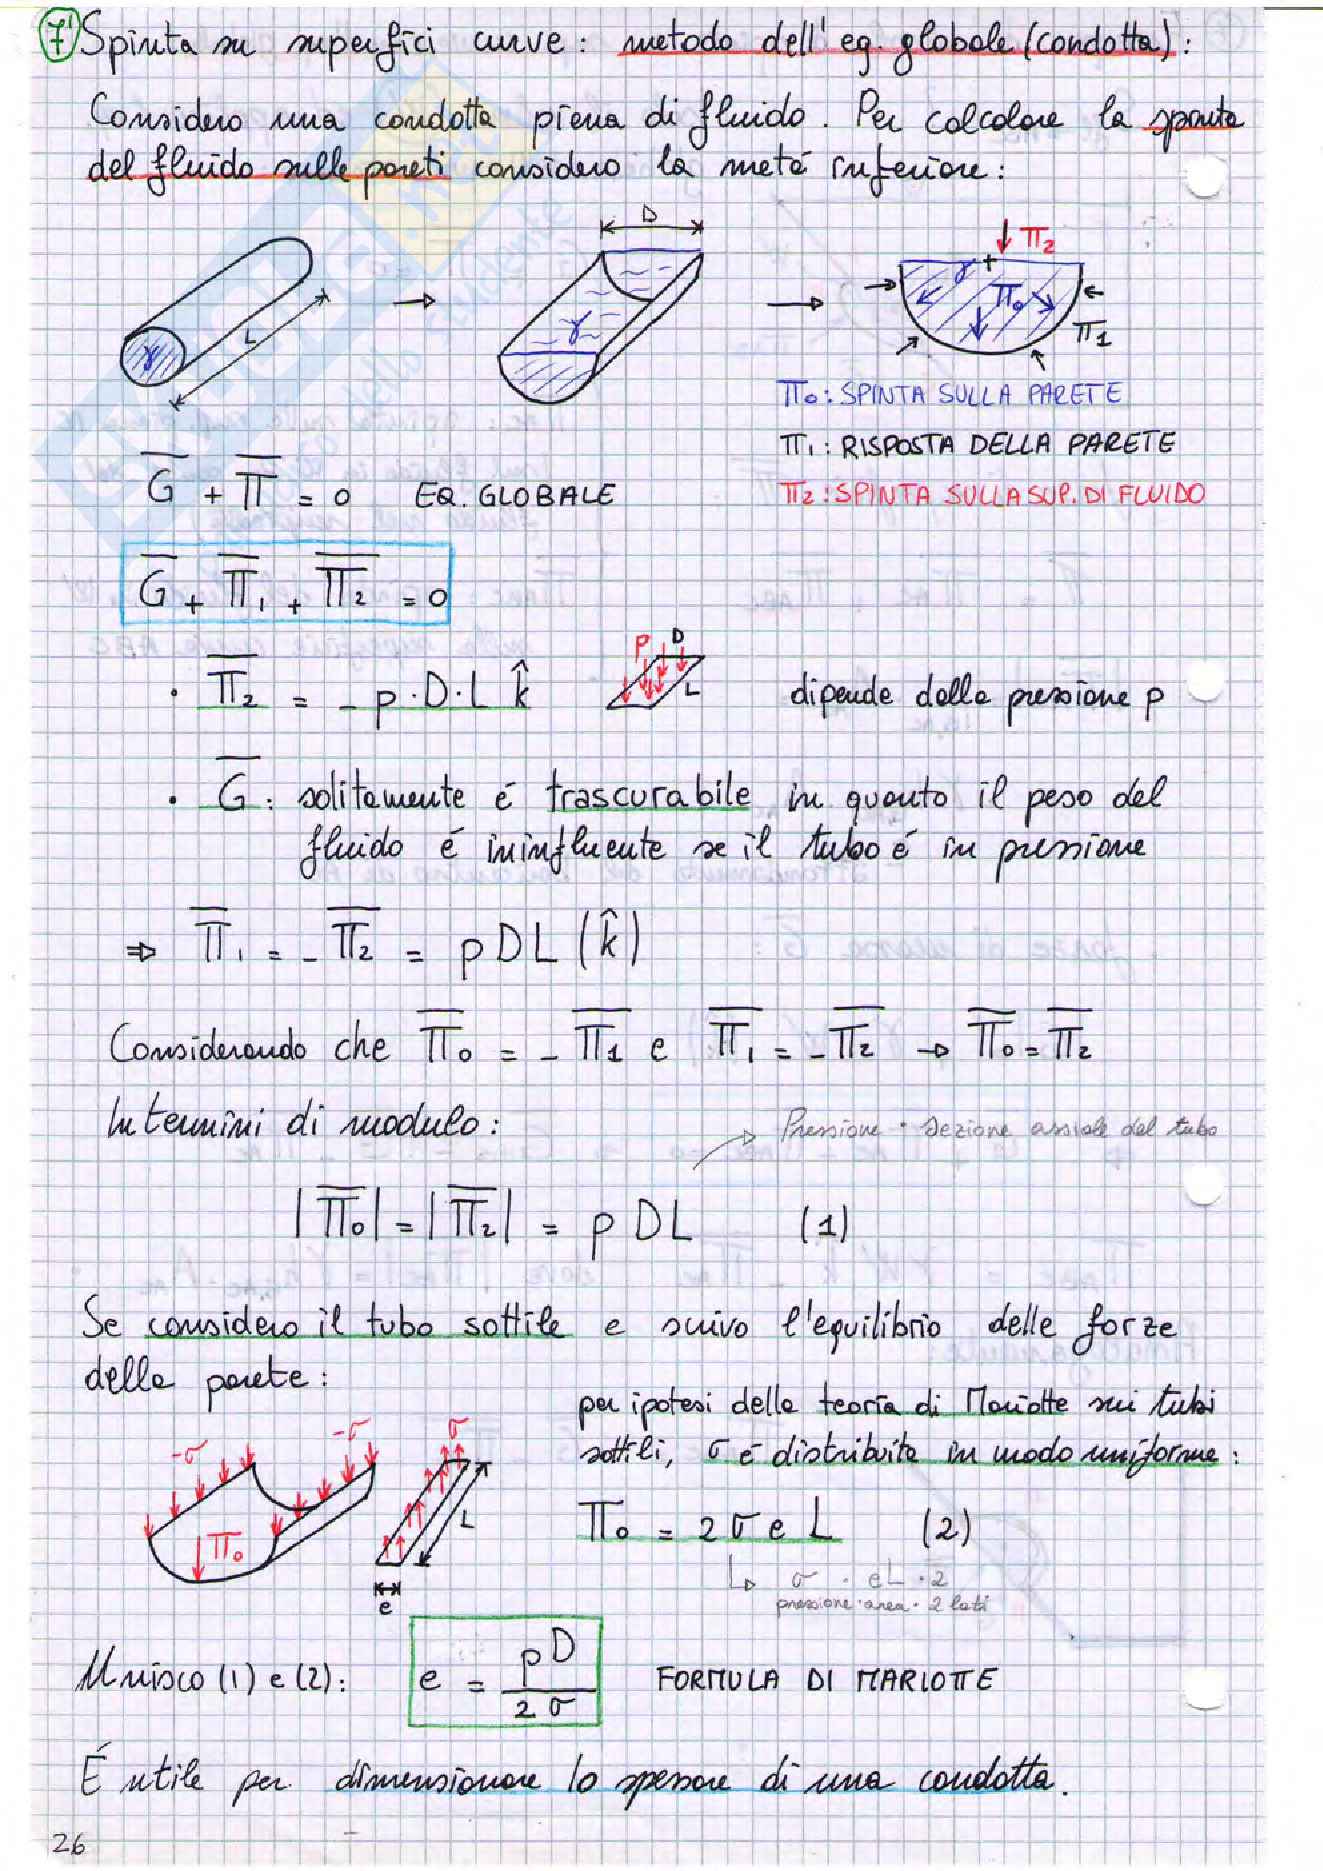 7' Spinta su superfici curve: metodo dell'eq. globale (condotta):
Considero una condotta piena di fluido. Per calcolare la spinta
del fluido sulle pareti considero la metà inferiore:
D
L
γ
γ
γ
Π2
Π0
Π1
Π0: SPINTA SULLA PARETE
Π1: RISPOSTA DELLA PARETE
Π2: SPINTA SULLA SUP. DI FLUIDO
G + Π = 0 EQ. GLOBALE
G + Π1 + Π2 = 0
• Π2 = - p · D · L k̂
P D L
dipende dalla pressione p
• G: solitamente é trascurabile in quanto il peso del
fluido é ininfluente se il tubo é in pressione
⇒ Π1 = - Π2 = p D L (k̂)
Considerando che Π0 = - Π1 e Π1 = - Π2 → Π0 = Π2
In termini di modulo:
Pressione · sezione assiale del tubo
|Π0| = |Π2| = p D L (1)
Se considero il tubo sottile e scrivo l'equilibrio delle forze
della parete:
per ipotesi della teoria di Mariotte sui tubi
sottili, σ é distribuita in modo uniforme:
-σ
-σ
σ
Π0
L
e
Π0 = 2 σ e L (2)
↳ σ · eL · 2
pressione · area · 2 lati
Unisco (1) e (2): e = pD / 2σ FORMULA DI MARIOTTE
É utile per dimensionare lo spessore di una condotta.
26